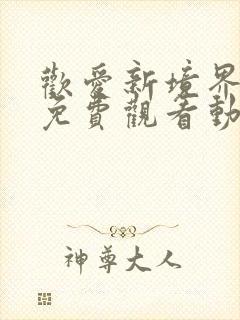 歡愛新境界
免費觀看動
神尊大人